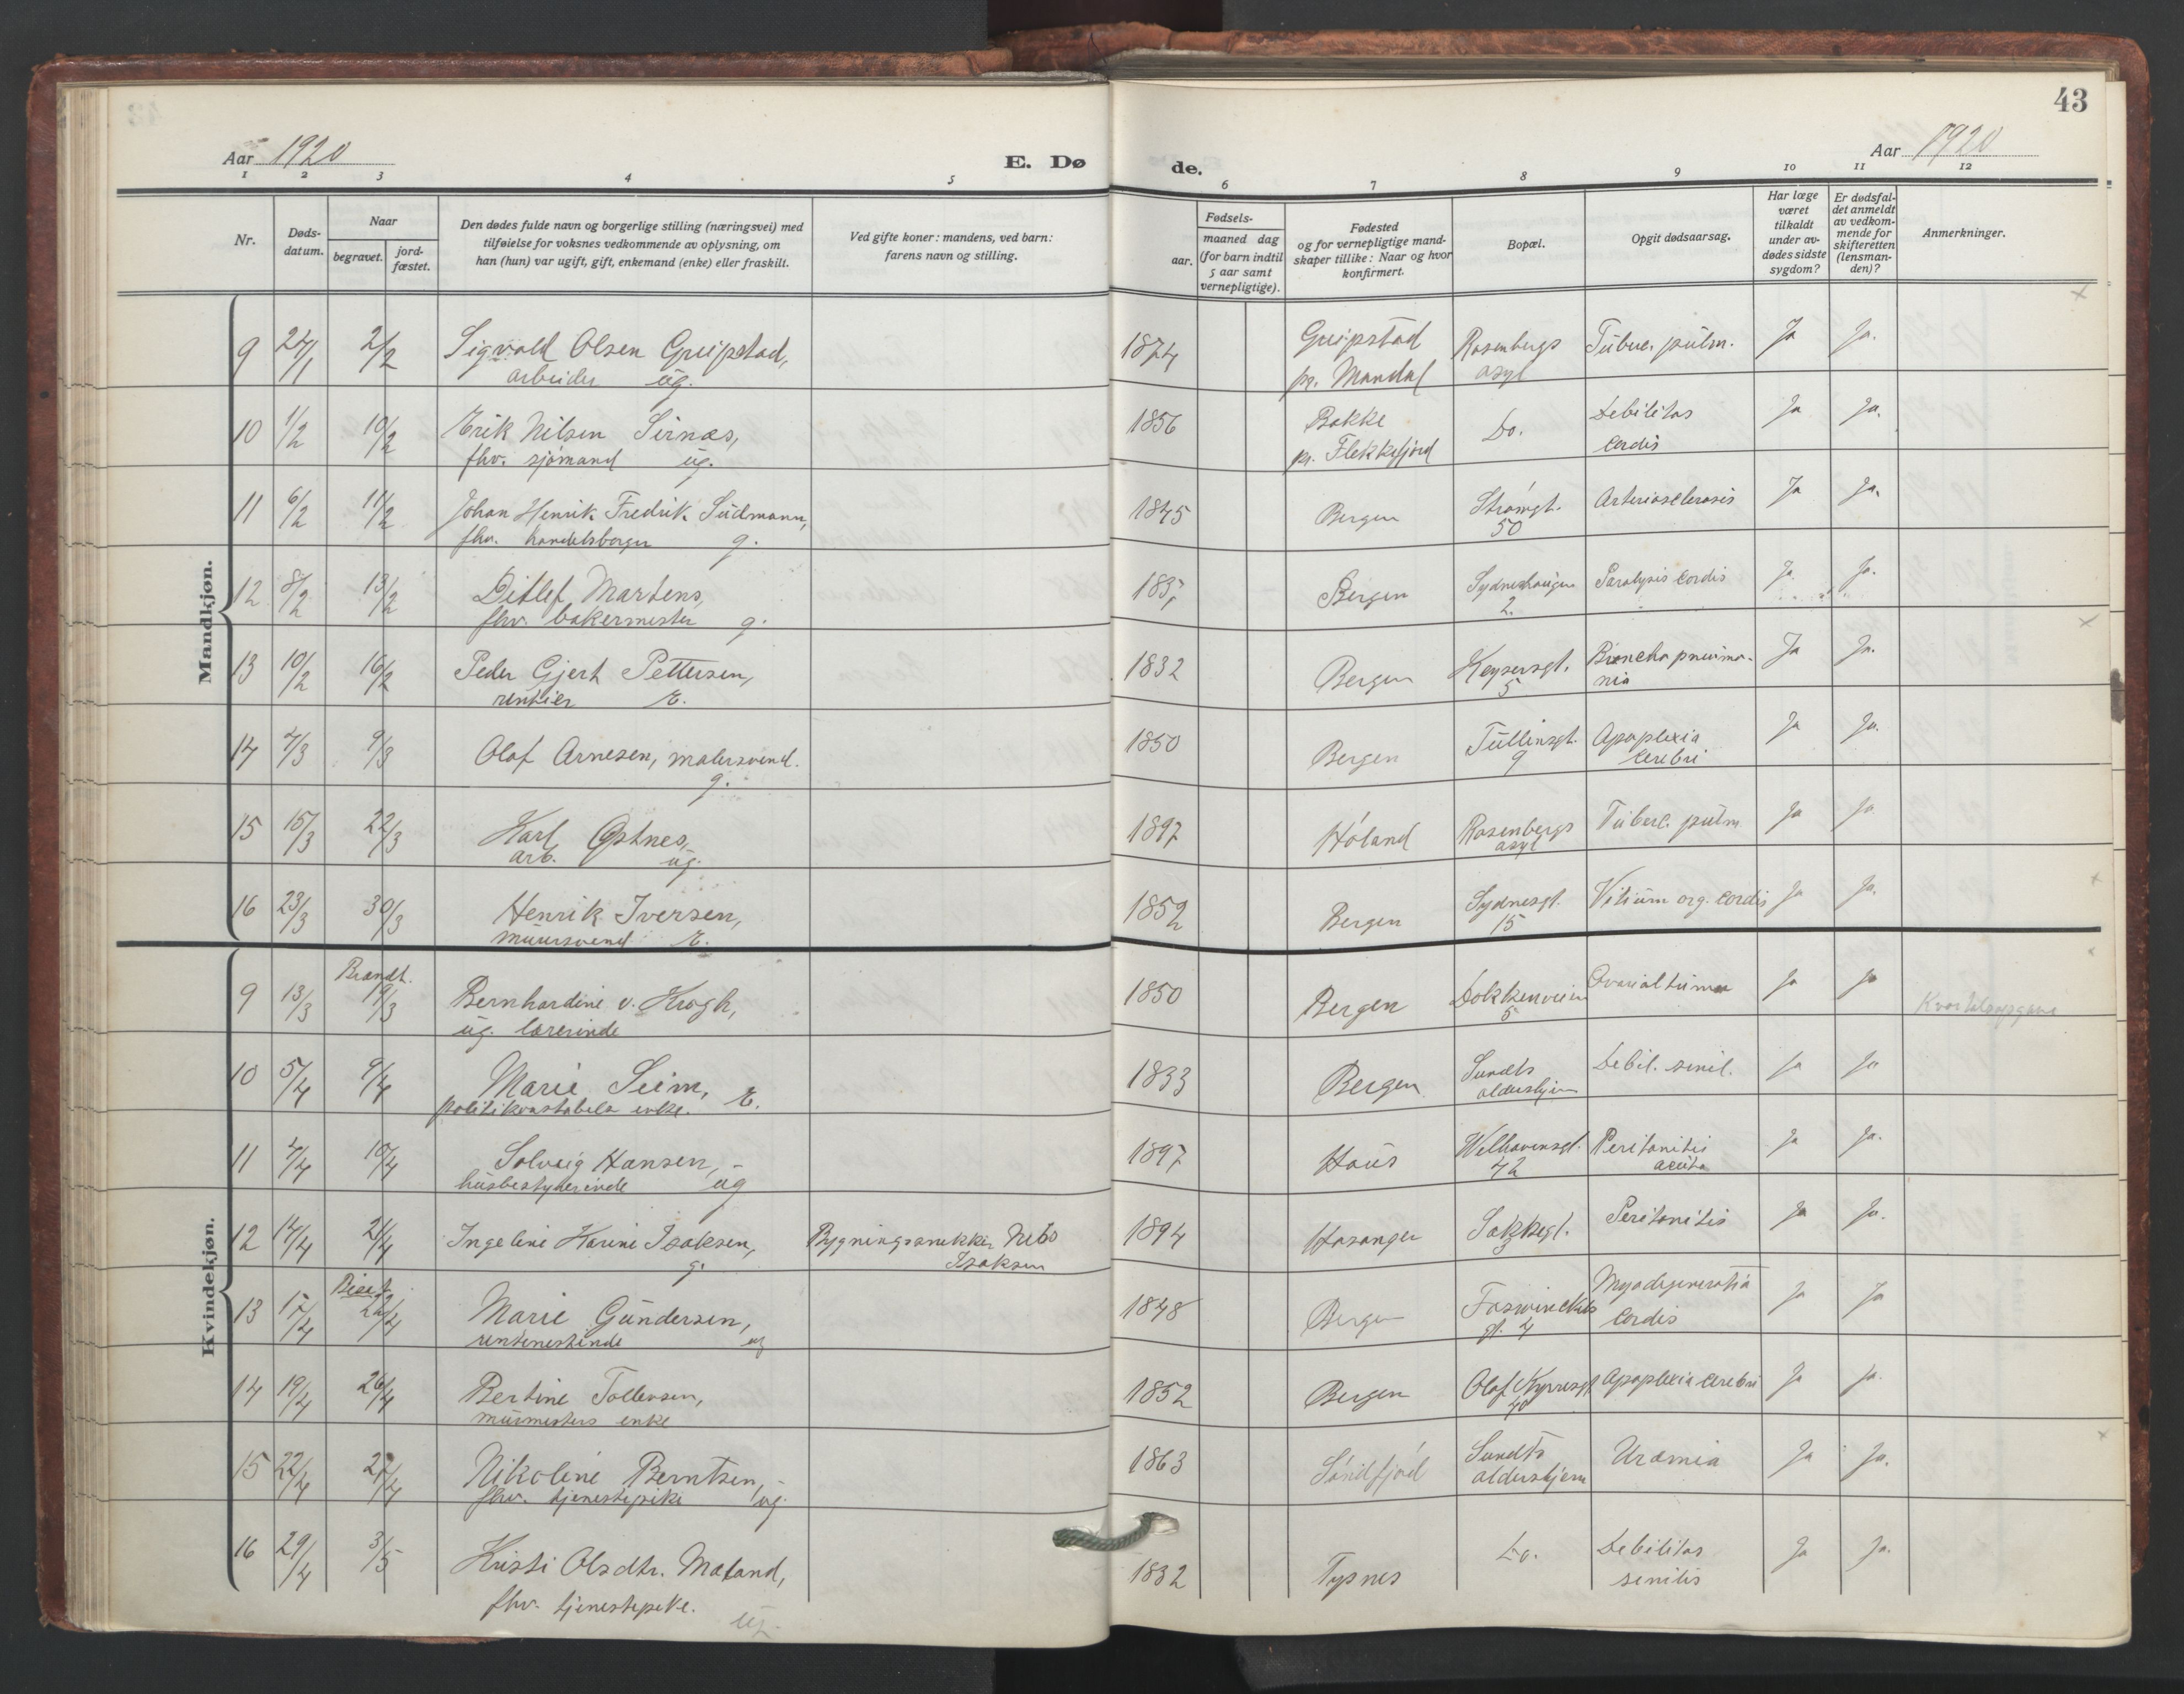 43
Aar 1920
E. Dø
de.
Aar 1920
1 2 3 4 5 6 7 8 9 10 11 12
Nr.
Dødsdatum.
Naar
begravet.
jordfæstet.
Den dødes fulde navn og borgerlige stilling (næringsvei) med
tilføielse for voksnes vedkommende av oplysning, om
han (hun) var ugift, gift, enkemand (enke) eller fraskilt.
Ved gifte koner: mandens, ved barn:
farens navn og stilling.
Fødsels-
aar.
maaned dag
(for barn indtil
5 aar samt
vernepligtige).
Fødested
og for vernepligtige mand-
skaper tillike: Naar og hvor
konfirmert.
Bopæl.
Opgit dødsaarsag.
Har læge
været
tilkaldt
under av-
dødes sidste
sygdom?
Er dødsfal-
det anmeldt
av vedkom-
mende for
skifteretten
(lensman-
den)?
Anmerkninger.
Mandkjøn.
9 24/1 2/2 Sigvald Olsen Greipstad, 1874 Greipstad Rosenbergs Tüberc. pülm. Ja Ja.
arbeider üg. pr. Mandal asyl
10 1/2 10/2 Erik Nilsen Sirnæs, 1856 Bakke Do. Debilitas Ja Ja.
fhv. sjømand üg. pr. Flekkefjord cordis
11 6/2 11/2 Johan Henrik Fredrik Südmann, 1845 Bergen Strømgt. Arteriosclerosis Ja Ja.
fhv. handelsborger g. 50
12 8/2 13/2 Ditlef Martens, Bergen Sydneshaugen Paralysis cordis Ja Ja.
fhv. bakermester g. 2
13 10/2 16/2 Peder Gjert Pettersen, 1832 Bergen Keysersgt. Bronchopneumo- Ja Ja.
rentier E. 5 nia
14 4/3 9/3 Olaf Arnesen, malersvend. 1850 Bergen Tüllinsgt. Apoplexia Ja Ja.
g. 9 cerebri
15 15/3 22/3 Karl Østnes, 1897 Høland Rosenbergs Tüberc. pülm. Ja Ja
arb. üg. asyl
16 23/3 30/3 Henrik Iversen, 1852 Bergen Sydnesgt. Vitium org. cordis Ja Ja.
müursvend E. 15
Kvindekjøn.
Brændt.
9 13/3 19/3 Bernhardine v. Krogh, 1850 Bergen Dokkenveien Ovarialtumor Ja Ja
üg. lærerinde 5
10 5/4 9/4 Marie Seim, 1833 Bergen Sundts Debil. senil. Ja Ja
politikonstabels enke. E. aldershjem
11 4/4 10/4 Solveig Hansen, 1897 Haüs Welhavensgt. Peritonitis Ja Ja.
hüsbestyrerinde üg 42 acüta
12 14/4 21/4 Ingeline Karine Isaksen, Bygningssnekker Nils 1894 Hosanger Peritonitis Ja Ja.
g. Isaksen
13 17/4 22/4 Marie Gündersen, 1848 Bergen Foswinckels Myodegeneratia Ja Ja
rentenistinde ug gt. 4 cordis
14 19/4 26/4 Bertine Tollevsen, 1852 Bergen Olaf Kyrresgt Apoplexia cerebri Ja Ja.
mürmesters enke 40
15 22/4 27/4 Nikoline Berntsen, 1863 Søndfjord Sundts Uræmia Ja Ja.
fhv. tjenestepike ug. aldershjem
16 29/4 3/5 Kristi Olsdtr. Møland, 1832 Tysnes Do. Debilitas Ja Ja.
fhv. tjenestepike. üg. senilis